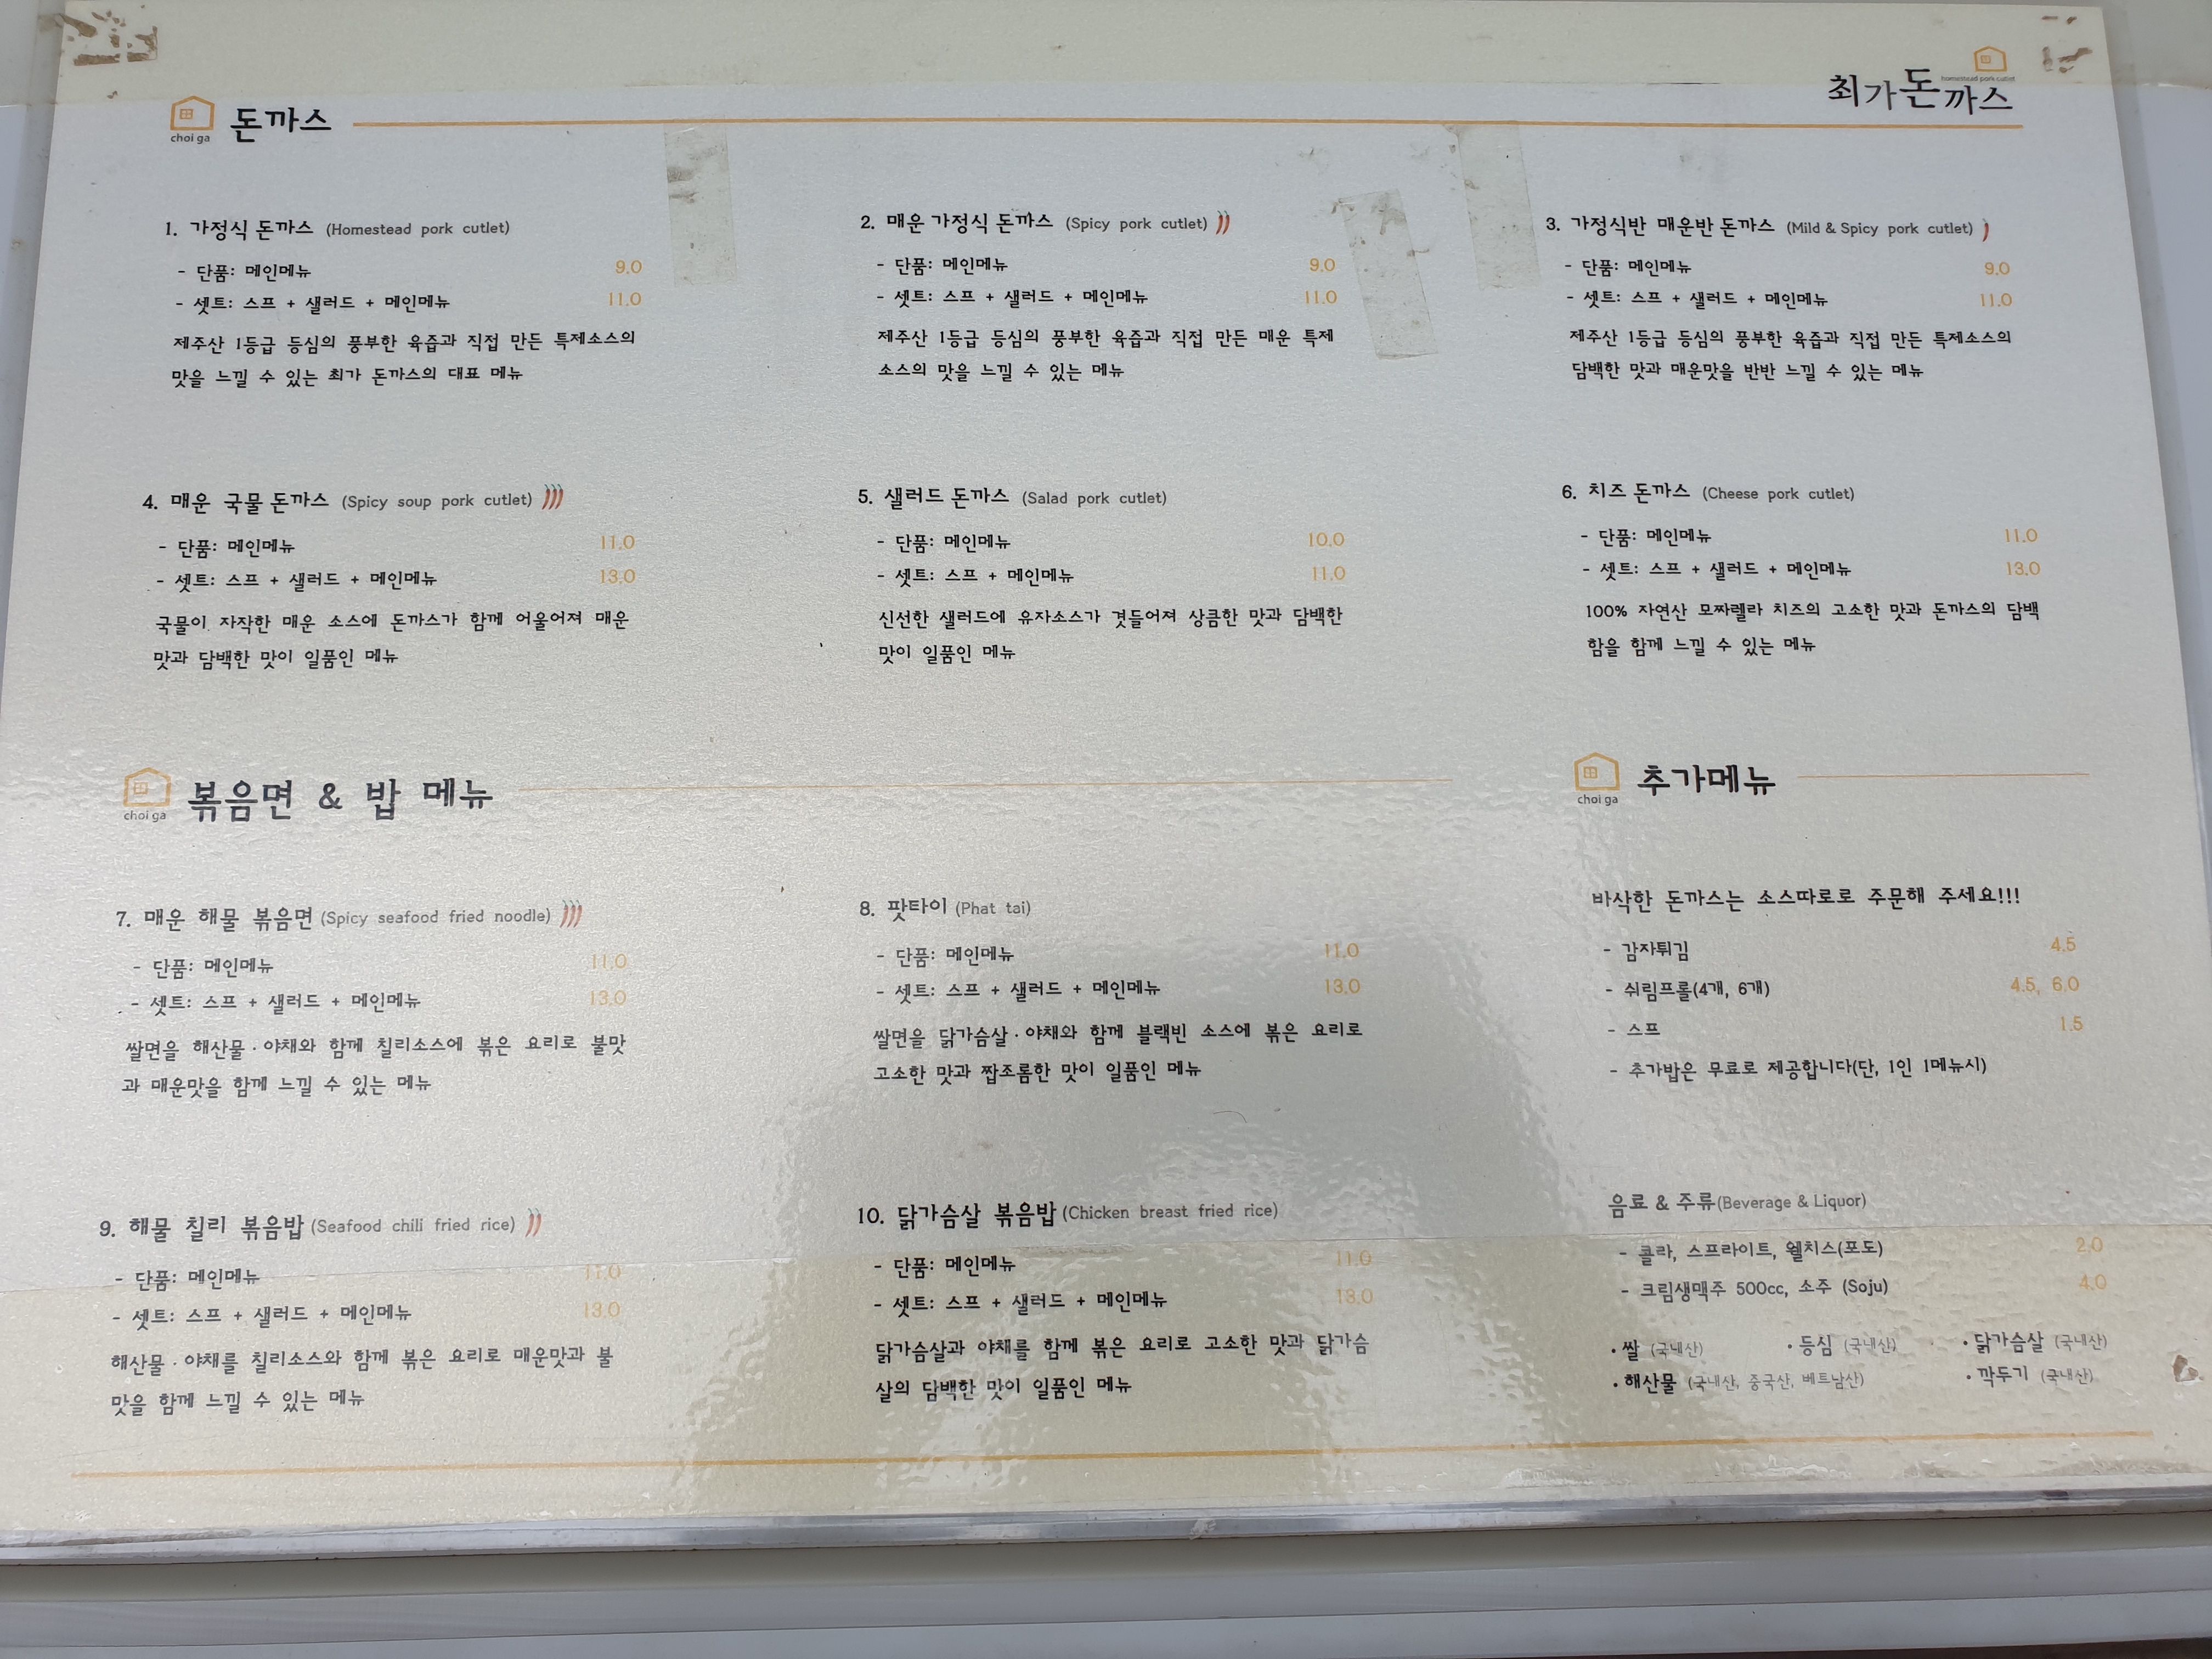 homestead pork cutlet
최가돈까스
choi ga
돈까스
1. 가정식 돈까스 (Homestead pork cutlet)
- 단품: 메인메뉴 9.0
- 셋트: 스프 + 샐러드 + 메인메뉴 11.0
제주산 1등급 등심의 풍부한 육즙과 직접 만든 특제소스의
맛을 느낄 수 있는 최가 돈까스의 대표 메뉴
2. 매운 가정식 돈까스 (Spicy pork cutlet)
- 단품: 메인메뉴 9.0
- 셋트: 스프 + 샐러드 + 메인메뉴 11.0
제주산 1등급 등심의 풍부한 육즙과 직접 만든 매운 특제
소스의 맛을 느낄 수 있는 메뉴
3. 가정식반 매운반 돈까스 (Mild & Spicy pork cutlet)
- 단품: 메인메뉴 9.0
- 셋트: 스프 + 샐러드 + 메인메뉴 11.0
제주산 1등급 등심의 풍부한 육즙과 직접 만든 특제소스의
담백한 맛과 매운맛을 반반 느낄 수 있는 메뉴
4. 매운 국물 돈까스 (Spicy soup pork cutlet)
- 단품: 메인메뉴 11.0
- 셋트: 스프 + 샐러드 + 메인메뉴 13.0
국물이 자작한 매운 소스에 돈까스가 함께 어울어져 매운
맛과 담백한 맛이 일품인 메뉴
5. 샐러드 돈까스 (Salad pork cutlet)
- 단품: 메인메뉴 10.0
- 셋트: 스프 + 메인메뉴 11.0
신선한 샐러드에 유자소스가 겻들어져 상큼한 맛과 담백한
맛이 일품인 메뉴
6. 치즈 돈까스 (Cheese pork cutlet)
- 단품: 메인메뉴 11.0
- 셋트: 스프 + 샐러드 + 메인메뉴 13.0
100% 자연산 모짜렐라 치즈의 고소한 맛과 돈까스의 담백
함을 함께 느낄 수 있는 메뉴
choi ga
볶음면 & 밥 메뉴
7. 매운 해물 볶음면 (Spicy seafood fried noodle)
- 단품: 메인메뉴 11.0
- 셋트: 스프 + 샐러드 + 메인메뉴 13.0
쌀면을 해산물 · 야채와 함께 칠리소스에 볶은 요리로 불맛
과 매운맛을 함께 느낄 수 있는 메뉴
8. 팟타이 (Phat tai)
- 단품: 메인메뉴 11.0
- 셋트: 스프 + 샐러드 + 메인메뉴 13.0
쌀면을 닭가슴살 · 야채와 함께 블랙빈 소스에 볶은 요리로
고소한 맛과 짭조롬한 맛이 일품인 메뉴
9. 해물 칠리 볶음밥 (Seafood chili fried rice)
- 단품: 메인메뉴 11.0
- 셋트: 스프 + 샐러드 + 메인메뉴 13.0
해산물 · 야채를 칠리소스와 함께 볶은 요리로 매운맛과 불
맛을 함께 느낄 수 있는 메뉴
10. 닭가슴살 볶음밥 (Chicken breast fried rice)
- 단품: 메인메뉴 11.0
- 셋트: 스프 + 샐러드 + 메인메뉴 13.0
닭가슴살과 야채를 함께 볶은 요리로 고소한 맛과 닭가슴
살의 담백한 맛이 일품인 메뉴
choi ga
추가메뉴
바삭한 돈까스는 소스따로로 주문해 주세요!!!
- 감자튀김 4.5
- 쉬림프롤(4개, 6개) 4.5, 6.0
- 스프 1.5
- 추가밥은 무료로 제공합니다(단, 1인 1메뉴시)
음료 & 주류(Beverage & Liquor)
- 콜라, 스프라이트, 웰치스(포도) 2.0
- 크림생맥주 500cc, 소주 (Soju) 4.0
• 쌀 (국내산) • 등심 (국내산) • 닭가슴살 (국내산)
• 해산물 (국내산, 중국산, 베트남산) • 깍두기 (국내산)